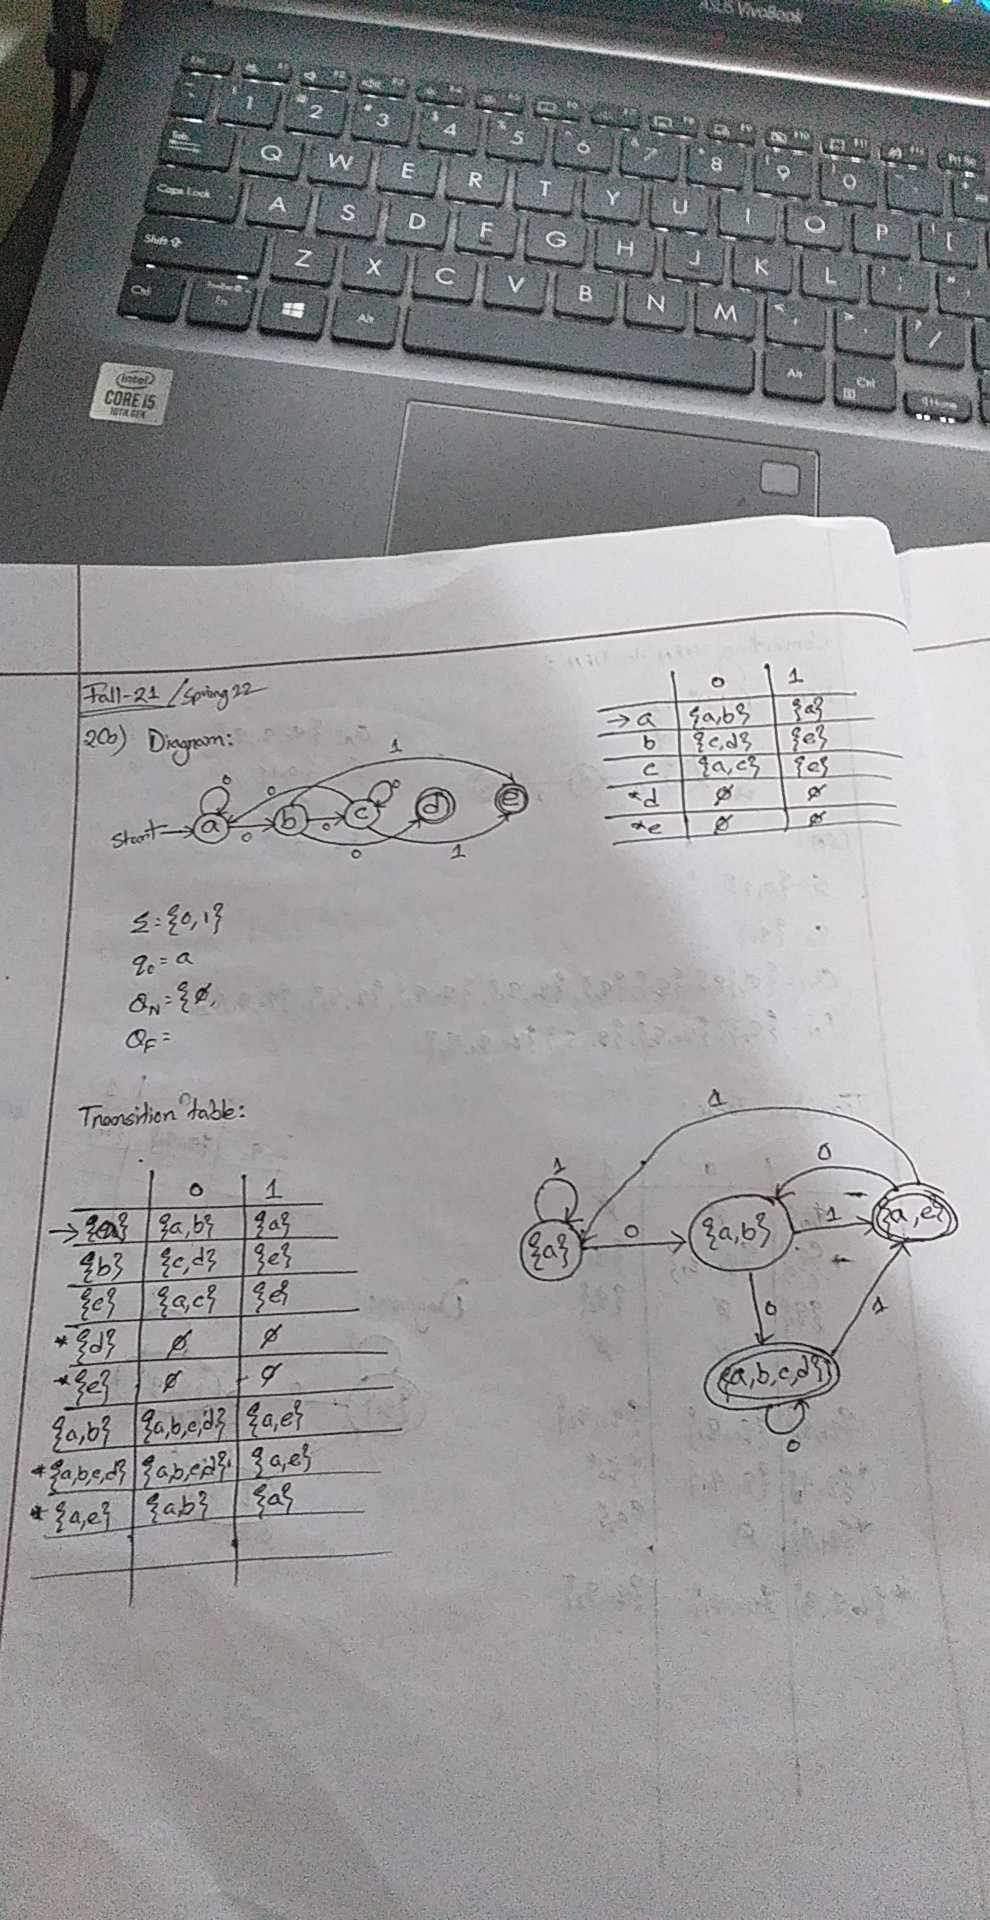 ASUS VivoBook
Esc F1 F2 F3 F4 F5 F6 F7 F8 F9 F10 F11 F12 Prt Sc
1 2 3 4 5 6 7 8 9 0
Tab Q W E R T Y U I O P [
Caps Lock A S D F G H J K L ;
Shift Z X C V B N M , . /
Ctrl Fn Alt Alt Ctrl
intel
CORE i5
10TH GEN
Fall-21 / Spring 22
2(b) Diagram:
0 1
→ a {a,b} {a}
b {c,d} {e}
c {a,c} {e}
*d ∅ ∅
*e ∅ ∅
1
0 0 0
Start a b c d e
0 0
0 1
Σ = {0,1}
q₀ = a
Q_N = {∅,
Q_F =
Transition table:
0 1
→ {a} {a,b} {a}
{b} {c,d} {e}
{c} {a,c} {e}
*{d} ∅ ∅
*{e} ∅ ∅
{a,b} {a,b,c,d} {a,e}
*{a,b,c,d} {a,b,c,d} {a,e}
*{a,e} {a,b} {a}
1
1 0
{a} 0 {a,b} 1 {a,e}
0 1
{a,b,c,d}
0